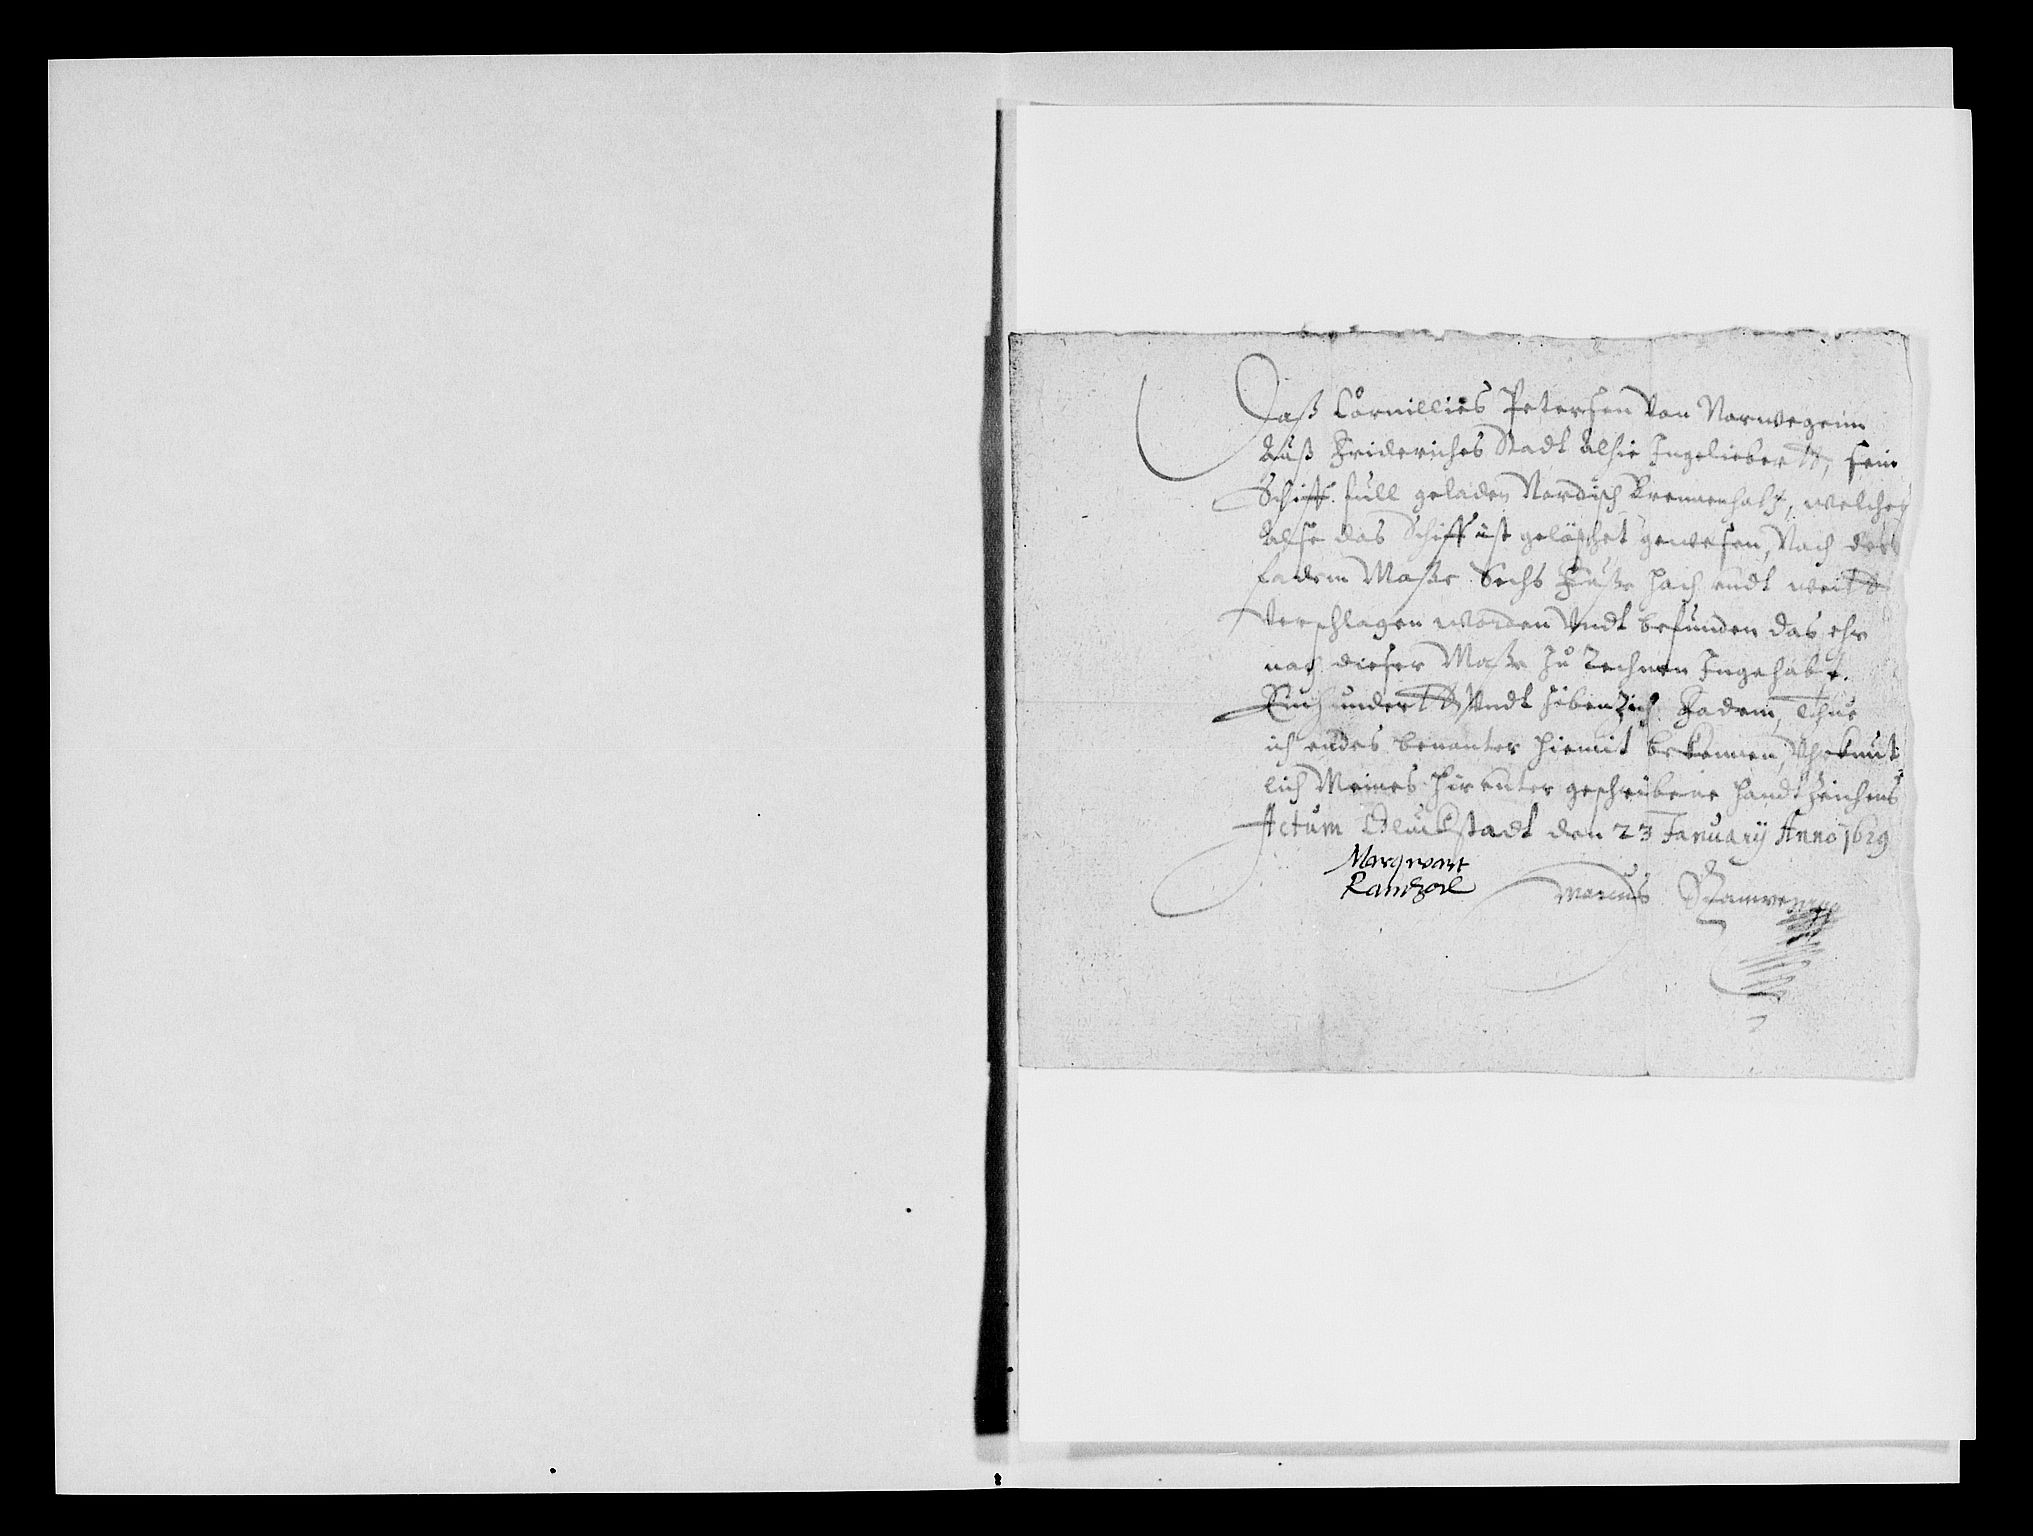 Daß Cornillies Petersen Von Norwegenn
Auß Friderichs Stadt Alhie Ingeliebertt, sein
Schiff full geladen Nordisch Brennenholtz, welches
Alse das Schiff ist gelöschet gewesen, Nach der
fadem Maße Sechs Fuße hoch vndt weitt
Verschlagen worden Vndt befunden das ehr
nach dieser Maße zu Rechnen Ingehabt.
Einhundertt Vndt sibenzich Fadem, Thue
ich endes benanter hiemit bekennen, Vhrkunt
lich Meines hirunter geschribene handt Zeichens
Actum Gluckstadt den 23 January Anno 1629
Marqwart
Rantzow
Marcus